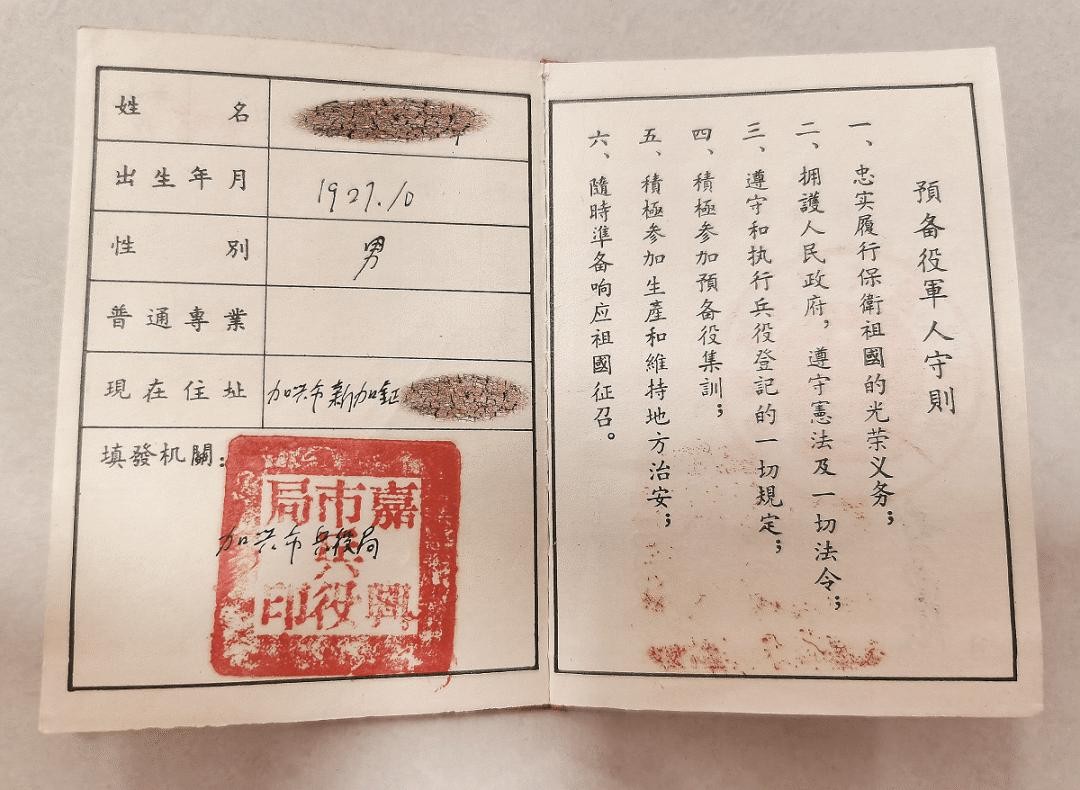 姓名
出生年月 1927.10
性別 男
普通專業
現在住址 加兴市新加
填發机關:
加兴市兵役局
嘉興市兵役局印
預备役軍人守則
一、忠实履行保衛祖國的光荣义务;
二、拥護人民政府,遵守憲法及一切法令;
三、遵守和执行兵役登記的一切規定;
四、積極参加預备役集訓;
五、積極参加生產和維持地方治安;
六、隨時準备响应祖國征召。